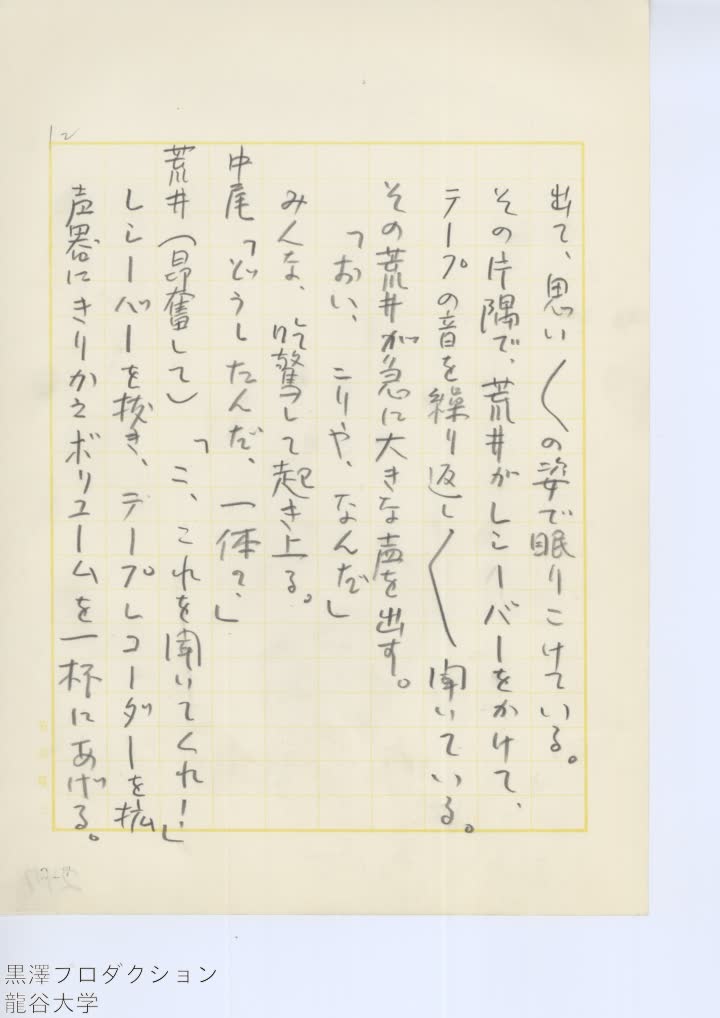 出て、思い〱の姿で眠りこけている。
その片隅で、荒井がレシーバーをかけて、
テープの音を繰り返し〱聞いている。
その荒井が急に大きな声を出す。
「おい、こりや、なんだ」
みんな、吃驚して起き上る。
中尾「どうしたんだ、一体て、」
荒井（昂奮して）「こ、これを聞いてくれ！」
レシーバーを抜き、テープレコーダーを拡
声器にきりかえボリュームを一杯にあげる。
12
黒澤プロダクション
龍谷大学